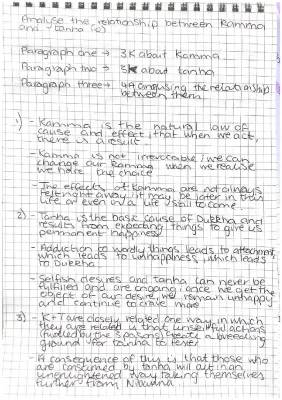 Analise the relationship between Kamma
and tanha (10)
Paragraph one → 3K about Kamma
Paragraph two → 3K about tanha
Paragraph three → 4A analysing the relationship
between them
1) - Kamma is the natural law of
cause and effect, that when we act,
there is a result
- Kamma is not irrevocable; we can
change our Kamma when we realise
we have the choice
- The effects of Kamma are not always
felt right away, it may be later in this
life or even in a life still to come
2) - Tanha is the basic cause of Dukkha and
results from expecting things to give us
permanent happiness
- Adduction to wordly things leads to attachment,
which leads to unhappiness, which leads
to Dukkha
- Selfish desires and tanha can never be
fulfilled and are ongoing; once we get the
object of our desire, we remain unhappy
and continue to crave more
3) - K+T are closely related one way in which
they are related is that unskilful actions
fuelled by the 3 poisons create a breeding
ground for tanha to
- A consequence of this is that those who
are consumed by tanha will act in an
unenlightened way taking themselves
further from Nibanna